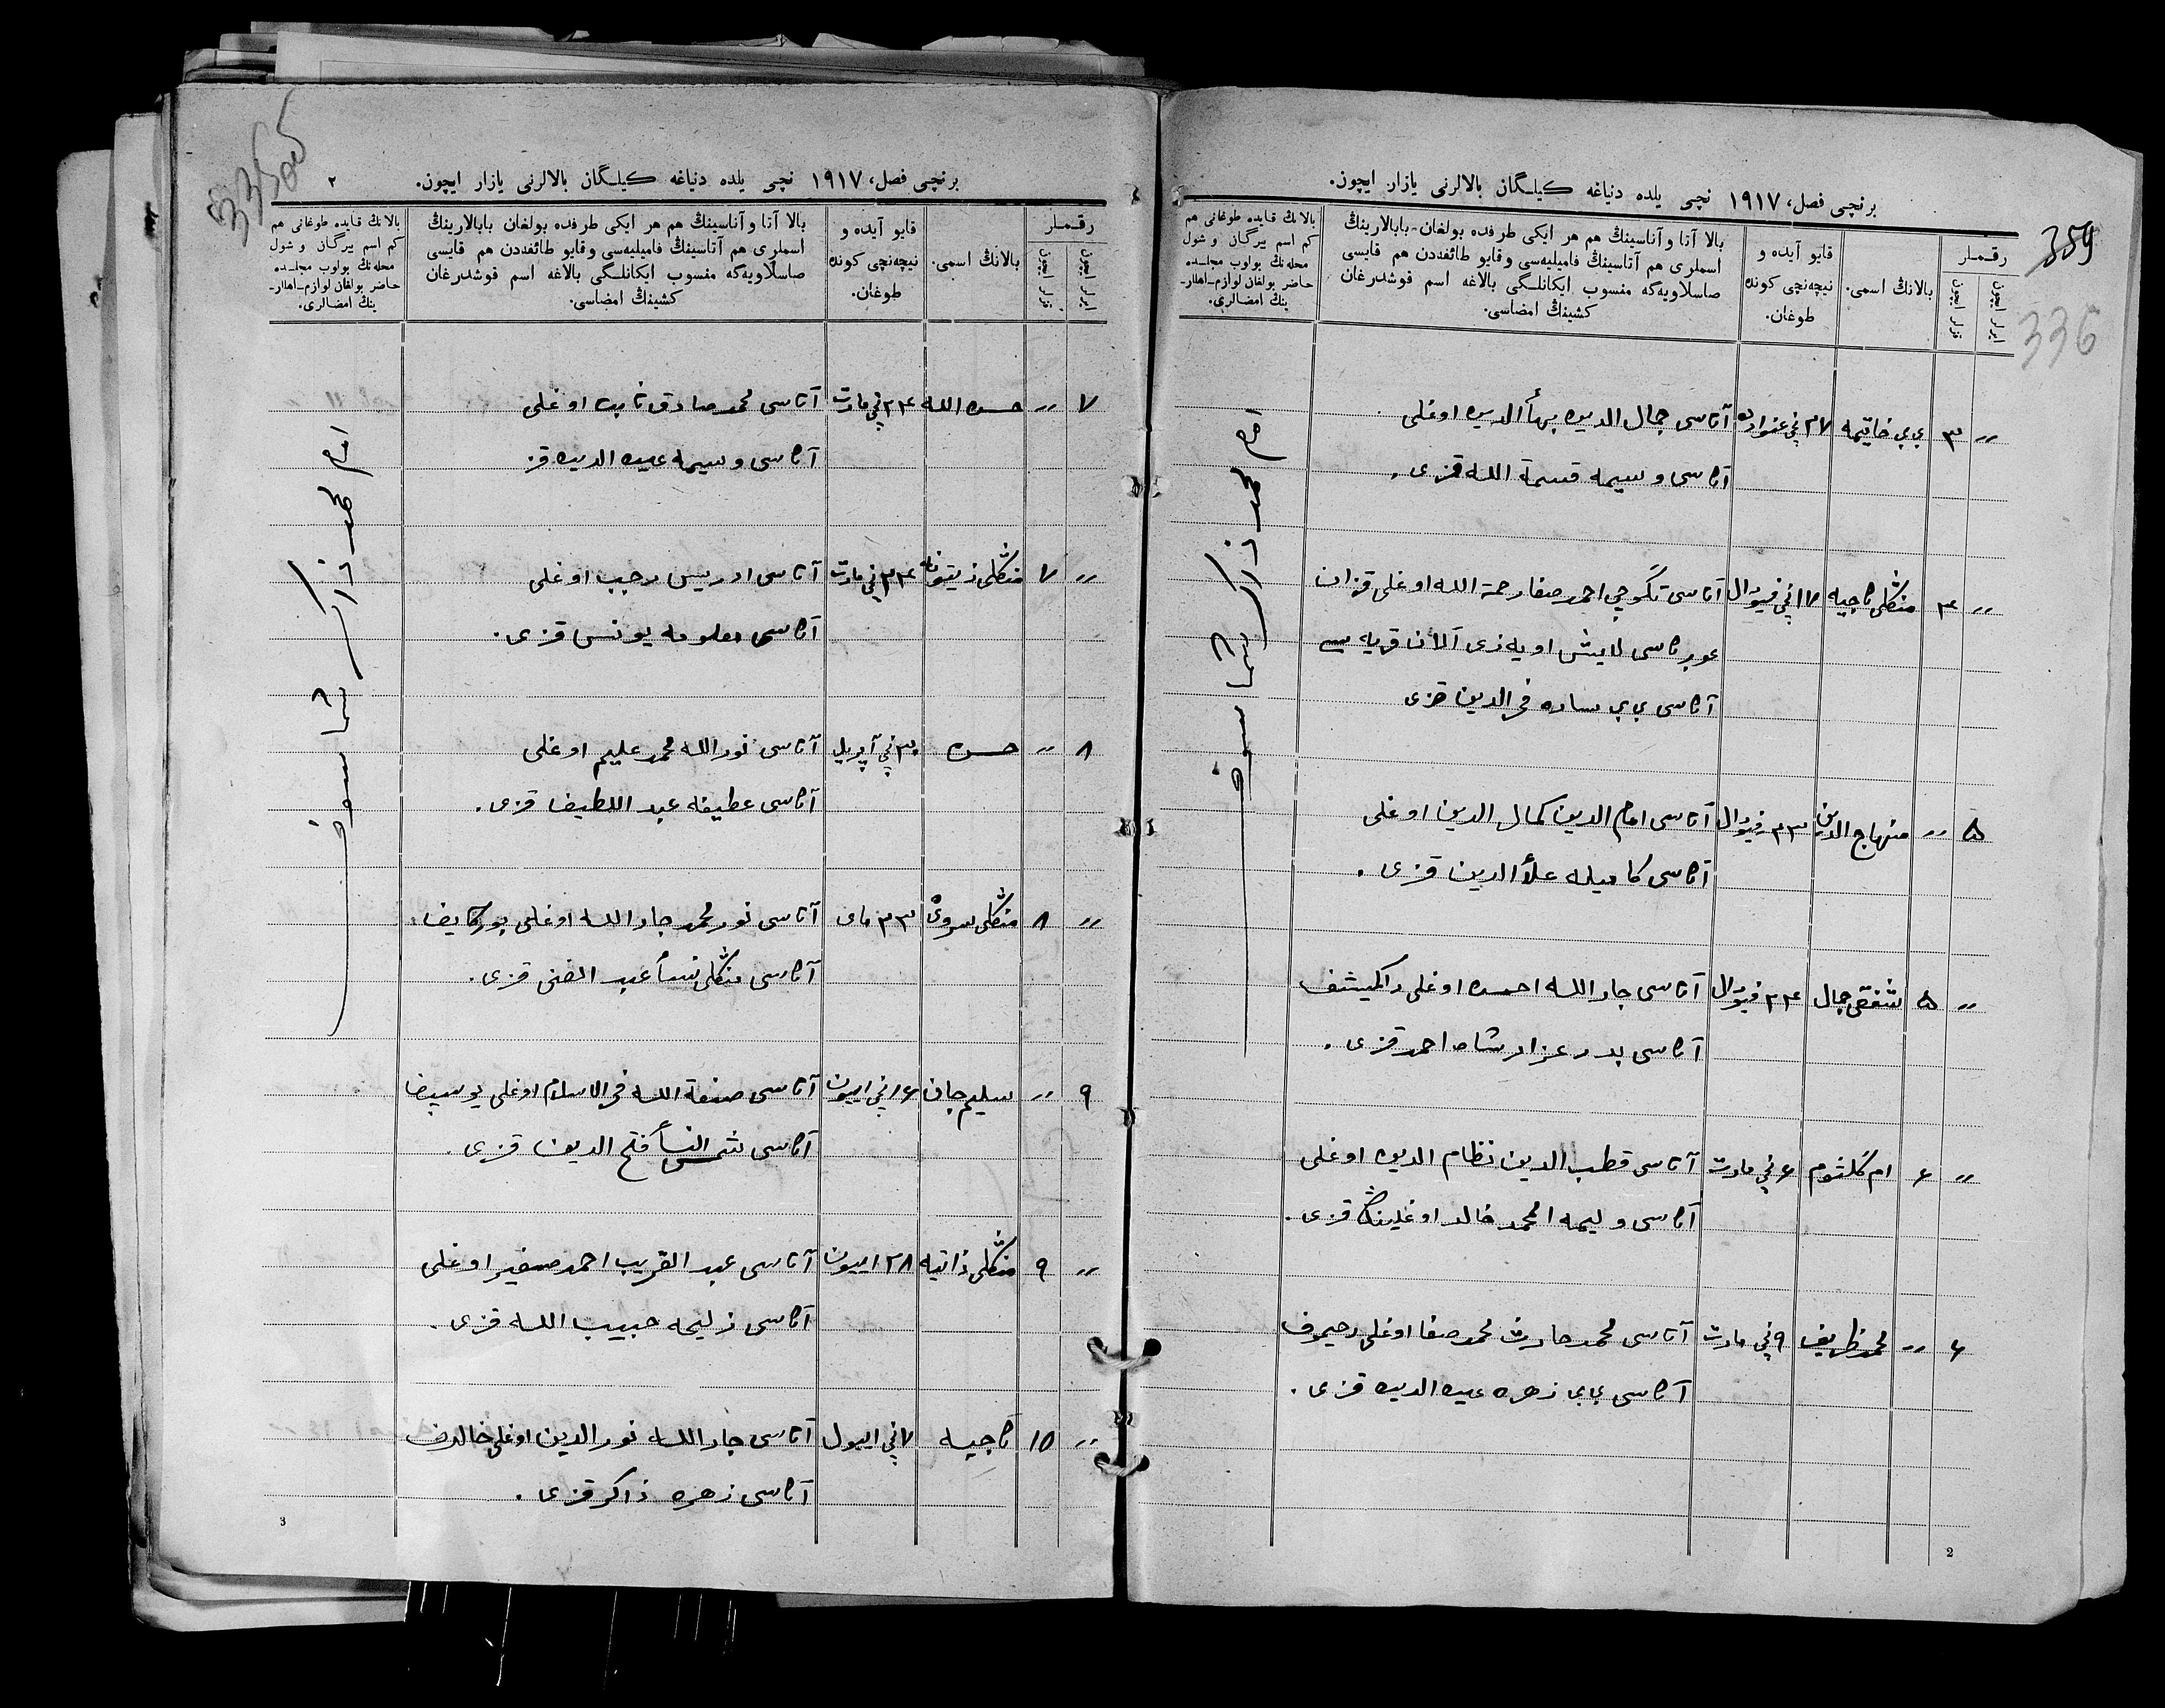 359
336
برنچی فصل، ١٩١٧ نچی یلده دنیاغه کیلگان بالالرنی یازار ایچون.
رقملر
ایرلر ایچون
قزلر ایچون
بالانڭ اسمی.
قایو آیده و
نیچه‌نچی کونده
طوغان.
بالا آتا و آناسینڭ هم هر ایکی طرفده بولغان بابالارینڭ
اسملری هم آتاسینڭ فامیلیه‌سی و قایو طائفه‌دن هم قایسی
صاسلاویه‌گه منسوب ایکانلگی بالاغه اسم قوشدرغان
کشینڭ امضاسی.
بالانڭ قایده طوغانی هم
کم اسم بیرگان و شول
محله‌نڭ بولوب مجلسده
حاضر بولغان لوازم اهللر-
ینڭ امضالری.
〃 ٣ بی بی خاتیمه ٢٧ نچی آتاسی جمال الدین بهأ الدین اوغلی
آناسی وسیمه قسمة الله قزی.
〃 ٤ منگلی ناجیه ١٧ نچی فیورال آتاسی احمدصفا رحمة الله اوغلی قزان
آناسی بی بی ساره فخر الدین قزی
٥ 〃 منهاج الدین ٢٣ فیورال آتاسی امام الدین کمال الدین اوغلی
آناسی کامیله علأ الدین قزی.
〃 ٥ شفقی جمال ٢٤ فیورال آتاسی جار الله احسن اوغلی
آناسی بدر شاه احمد قزی.
〃 ٦ ام کلثوم ٦ نچی مارت آتاسی قطب الدین نظام الدین اوغلی
آناسی ولیمه محمد خالد اوغلینڭ قزی.
٦ 〃 محمد ظریف ٩ نچی مارت آتاسی محمد حارث محمد صفا اوغلی رحیموف
آناسی بی بی زهره عین الدین قزی.
امام محمد ذاکر
2
٢
برنچی فصل، ١٩١٧ نچی یلده دنیاغه کیلگان بالالرنی یازار ایچون.
رقملر
ایرلر ایچون
قزلر ایچون
بالانڭ اسمی.
قایو آیده و
نیچه‌نچی کونده
طوغان.
بالا آتا و آناسینڭ هم هر ایکی طرفده بولغان بابالارینڭ
اسملری هم آتاسینڭ فامیلیه‌سی و قایو طائفه‌دن هم قایسی
صاسلاویه‌گه منسوب ایکانلگی بالاغه اسم قوشدرغان
کشینڭ امضاسی.
بالانڭ قایده طوغانی هم
کم اسم بیرگان و شول
محله‌نڭ بولوب مجلسده
حاضر بولغان لوازم اهللر-
ینڭ امضالری.
٧ 〃 حسن الله ٢٤ نچی مارت آتاسی محمد صادق ثابت اوغلی
آناسی وسیمه عین الدین قز
〃 ٧ منگلی زیتونه ٢٤ نچی مارت آتاسی ادریس رجب اوغلی
آناسی معلومه یونس قزی.
٨ 〃 حسن ٣٠ نچی آپریل آتاسی نور الله محمد علیم اوغلی
آناسی عطیفه عبد اللطیف قزی.
〃 ٨ منگلی ٢٣ مای آتاسی نور محمد جار الله اوغلی
آناسی منگلی نسأ عبد الغنی قزی.
٩ 〃 سلیم جان ١٦ نچی ایون آتاسی صنعة الله فخر الاسلام اوغلی
آناسی شمس النسأ فتح الدین قزی.
〃 ٩ منگلی ٢٨ ایون آتاسی عبد القریب احمد صغیر اوغلی
آناسی زلیخه حبیب الله قزی.
〃 10 ناجیه ٧ نچی ایول آتاسی جار الله نور الدین اوغلی خالدف
آناسی زهره ذاکر قزی.
امام محمد ذاکر
3